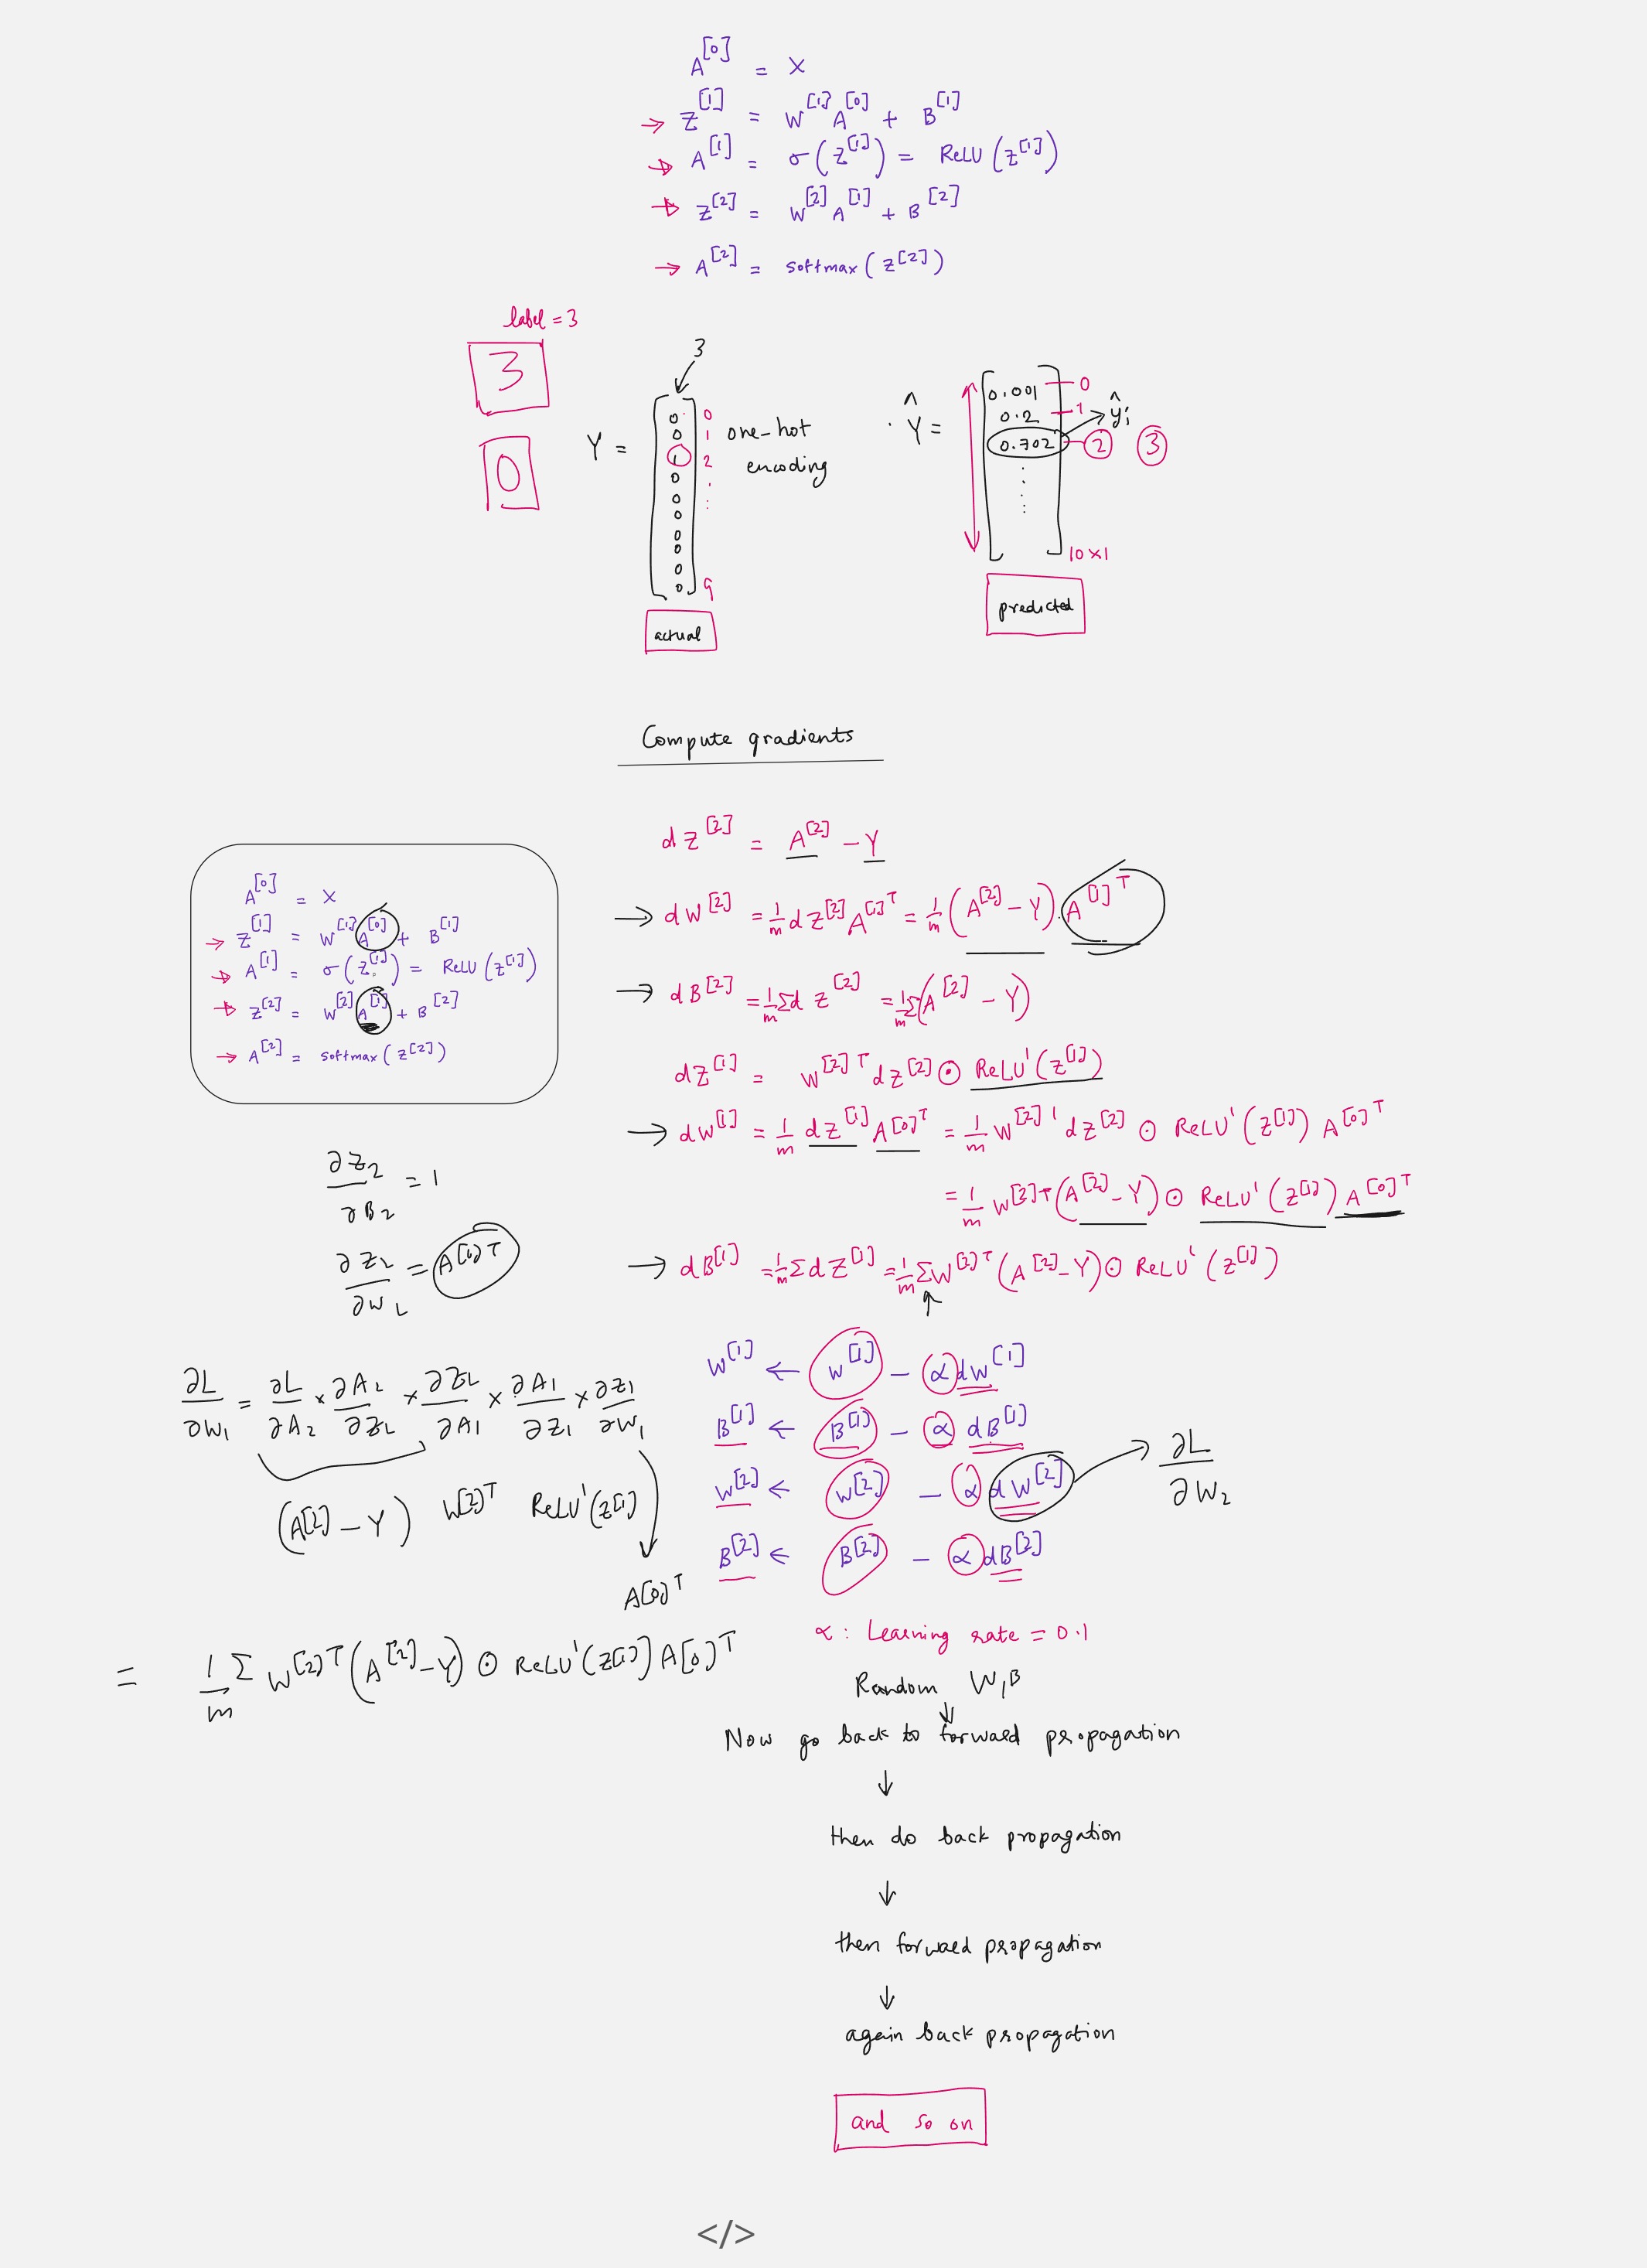 A[0] = X
→ Z[1] = W[1] A[0] + B[1]
→ A[1] = σ(Z[1]) = ReLU(Z[1])
→ Z[2] = W[2] A[1] + B[2]
→ A[2] = softmax(Z[2])
label = 3
3
0
3
Y =
0 0
0 1
1 2
0 .
0 :
0
0
0
0
0 9
one-hot
encoding
actual
Ŷ =
0.001 — 0
0.2 — 1 → ŷi
0.702 — 2 3
10×1
predicted
Compute gradients
dZ[2] = A[2] − Y
→ dW[2] = 1/m dZ[2] A[1]T = 1/m (A[2] − Y) . A[1]T
→ dB[2] = 1/m Σ dZ[2] = 1/m Σ(A[2] − Y)
dZ[1] = W[2]T dZ[2] ⊙ ReLU'(Z[1])
→ dW[1] = 1/m dZ[1] A[0]T = 1/m W[2]' dZ[2] ⊙ ReLU'(Z[1]) A[0]T
= 1/m W[2]T (A[2] − Y) ⊙ ReLU'(Z[1]) A[0]T
→ dB[1] = 1/m Σ dZ[1] = 1/m Σ W[2]T (A[2] − Y) ⊙ ReLU'(Z[1])
A[0] = X
→ Z[1] = W[1] A[0] + B[1]
→ A[1] = σ(Z[1]) = ReLU(Z[1])
→ Z[2] = W[2] A[1] + B[2]
→ A[2] = softmax(Z[2])
∂Z2/∂B2 = 1
∂Z2/∂W2 = A[1]T
∂L/∂W1 = ∂L/∂A2 × ∂A2/∂Z2 × ∂Z2/∂A1 × ∂A1/∂Z1 × ∂Z1/∂W1
(A[2] − Y) W[2]T ReLU'(Z[1])
A[0]T
= 1/m Σ W[2]T (A[2] − Y) ⊙ ReLU'(Z[1]) A[0]T
W[1] ← W[1] − α dW[1]
B[1] ← B[1] − α dB[1]
W[2] ← W[2] − α dW[2] → ∂L/∂W2
B[2] ← B[2] − α dB[2]
α : Learning rate = 0.1
Random W,B
↓
Now go back to forward propagation
↓
then do back propagation
↓
then forward propagation
↓
again back propagation
and so on
</>